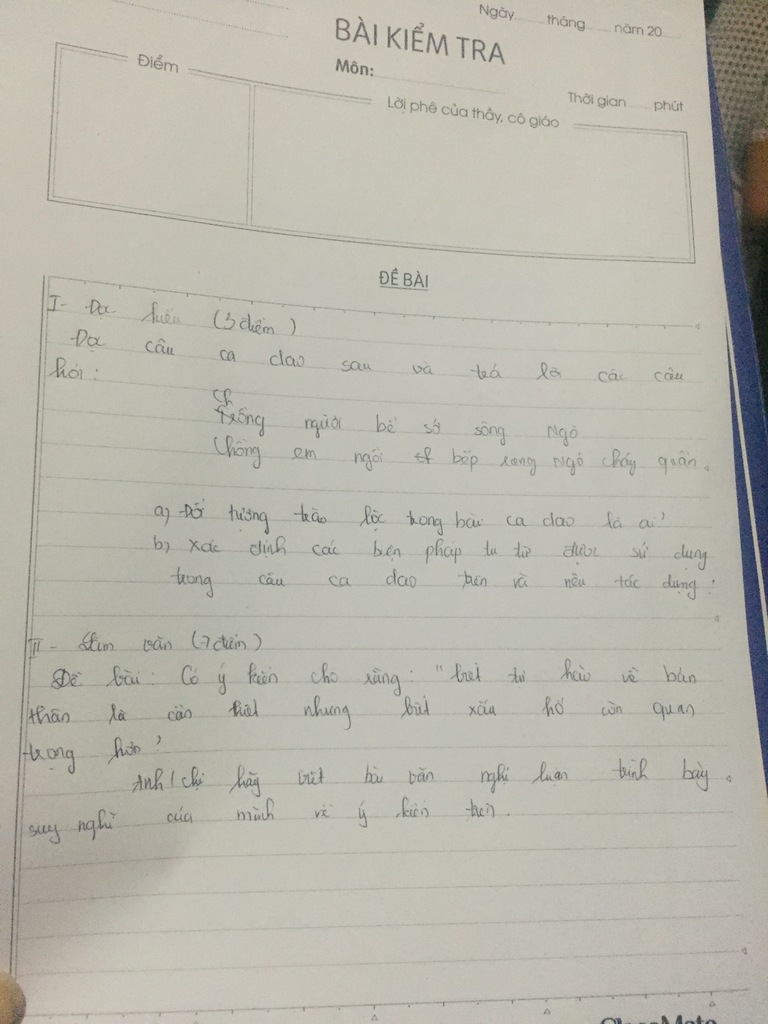 Ngày ...... tháng ...... năm 20
BÀI KIỂM TRA
Môn:
Thời gian ...... phút
Điểm
Lời phê của thầy, cô giáo
ĐỀ BÀI
I- Đọc hiểu (3 điểm)
Đọc câu ca dao sau và trả lời các câu
hỏi:
Ch
Chồng người bể sở sông Ngô
Chồng em ngồi bếp rang ngô cháy quần.
a) Đối tượng trào lộc trong bài ca dao là ai?
b) Xác định các biện pháp tu từ được sử dụng
trong câu ca dao trên và nêu tác dụng?
II- Làm văn (7 điểm)
Đề bài: Có ý kiến cho rằng: "biết tự hào về bản
thân là cần thiết nhưng biết xấu hổ còn quan
trọng hơn"
Anh/chị hãy viết bài văn nghị luận trình bày
suy nghĩ của mình về ý kiến trên.